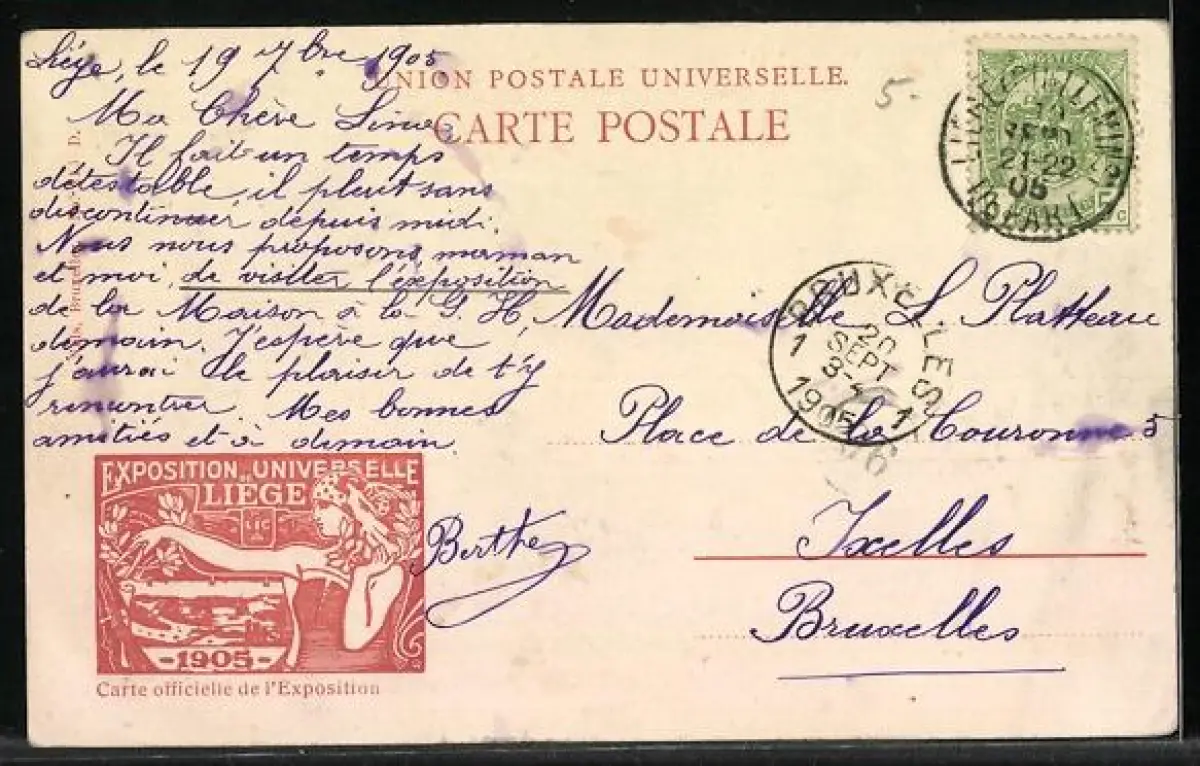 Liége, le 19 7bre 1905
UNION POSTALE UNIVERSELLE.
CARTE POSTALE
5-
Ma Chère
Il fait un temps
détestable, il pleut sans
discontinuer depuis midi.
Nous nous proposons, maman
et moi, de visiter l'exposition
de la Maison à la G. H,
demain. J'espère que
j'aurai le plaisir de t'y
rencontrer. Mes bonnes
amitiés et à demain.
Berthe
Mademoiselle L. Platteau
Place de la Couronne 5
Ixelles
Bruxelles
21-22
05
(DÉPART)
BRUXELLES
1 1
20
SEPT
1905
EXPOSITION UNIVERSELLE
DE LIÈGE
1905
Carte officielle de l'Exposition